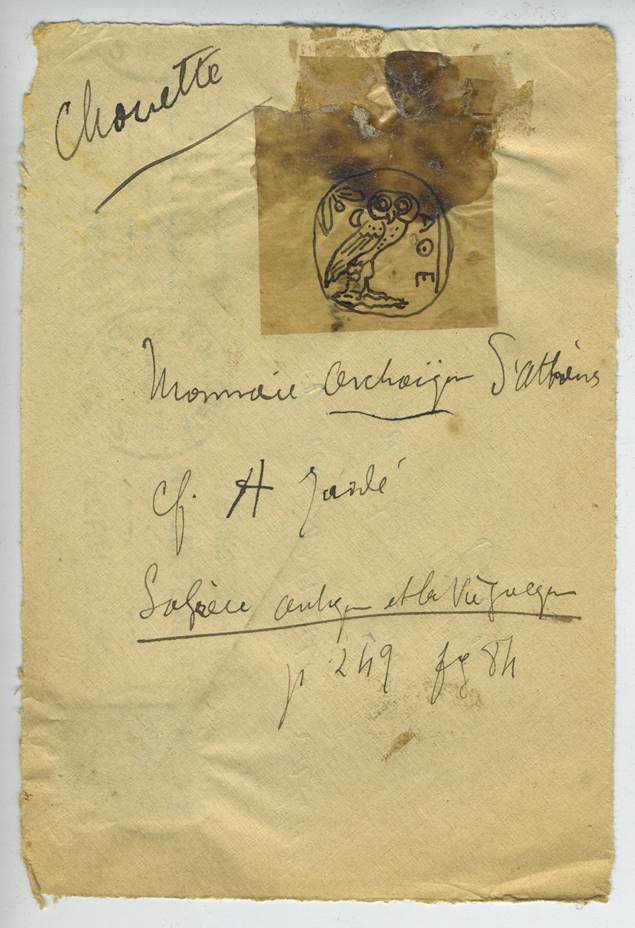 Chouette
ΑΘΕ
Monnaie archaïque d'Athènes
cf. A Jardé
La Grèce antique et la vie grecque
p 249 fig 84